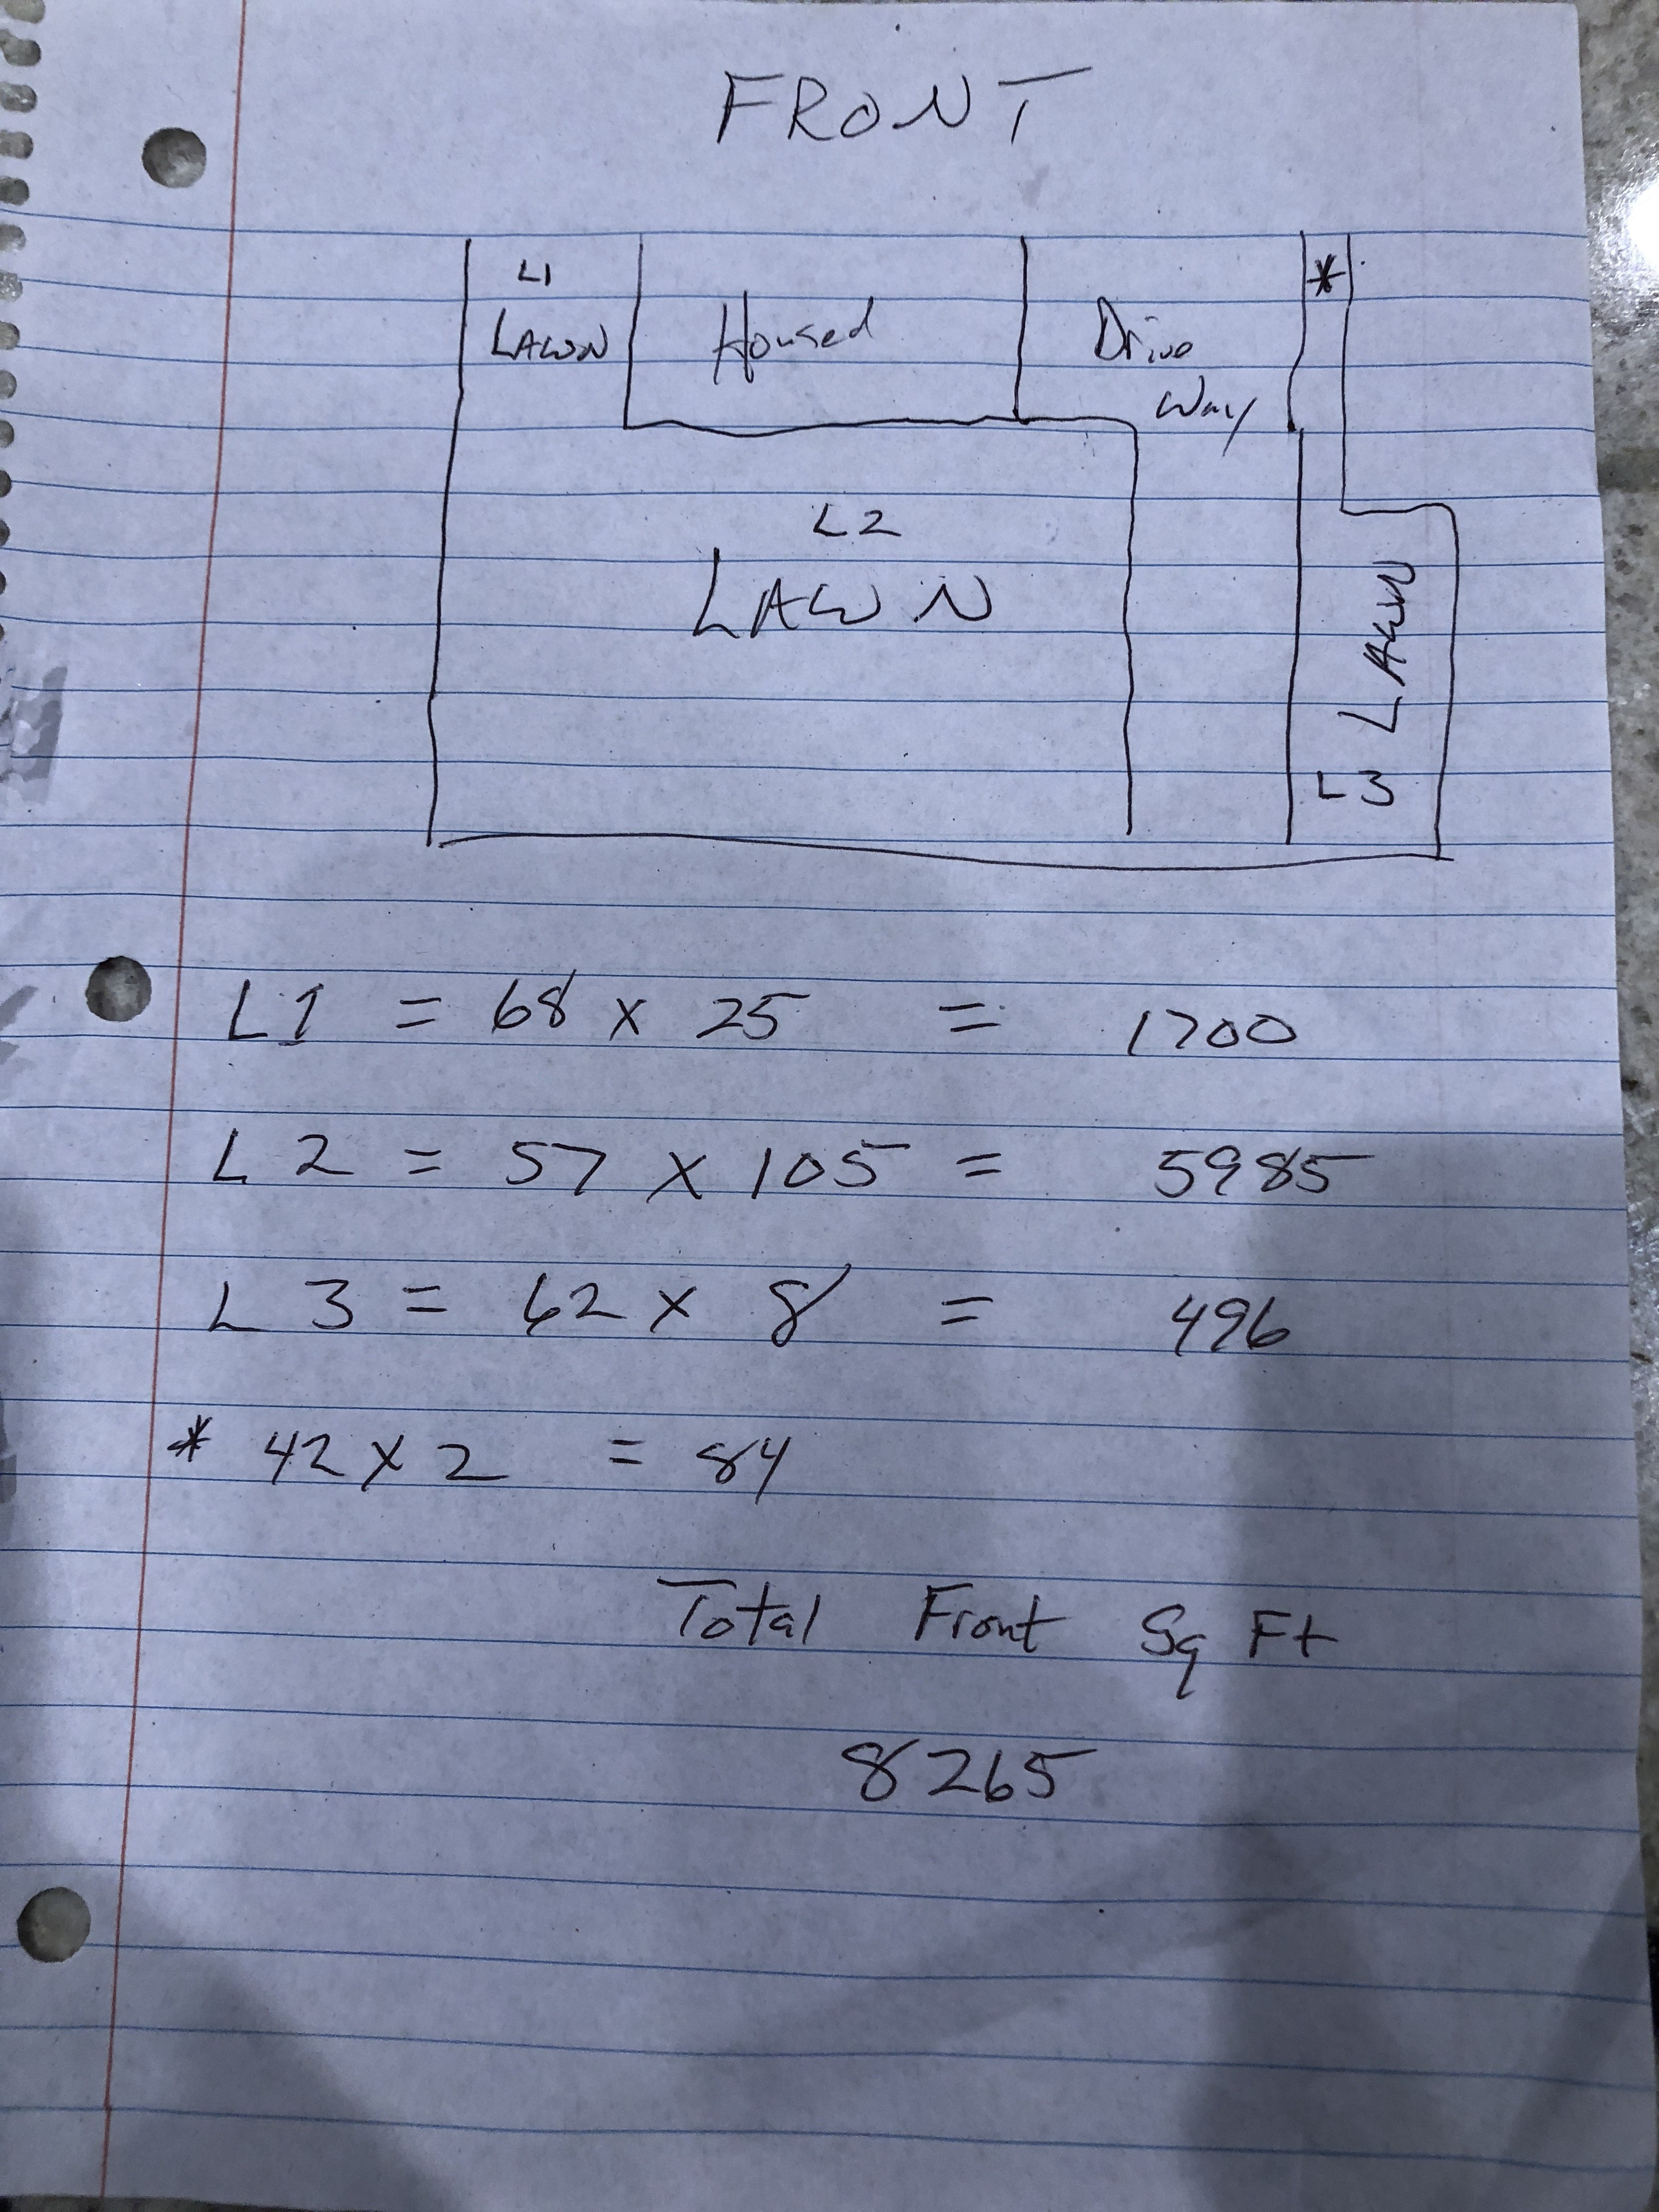 FRONT
L1
LAWN
Housed
Drive
Way
*
L2
LAWN
L3 LAWN
L1 = 68 x 25 = 1700
L2 = 57 x 105 = 5985
L3 = 62 x 8 = 496
* 42 x 2 = 84
Total Front Sq Ft
8265